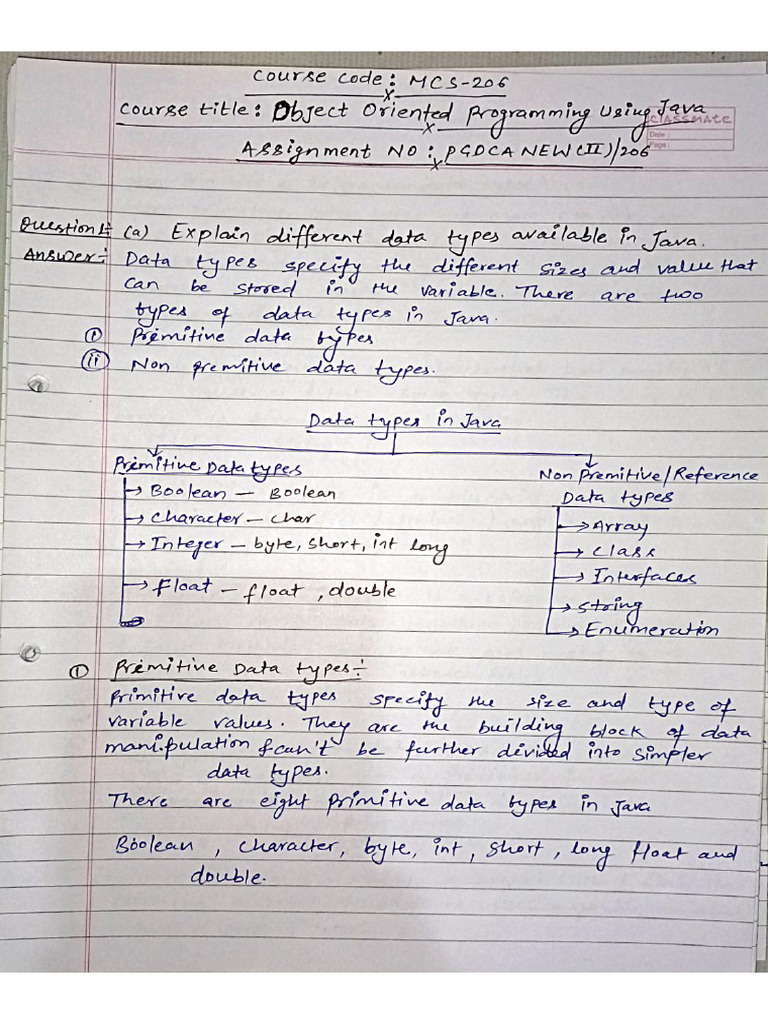 Course Code: MCS-206
Course title: Object Oriented Programming Using Java
CLASSMATE
Date :
Page :
Assignment NO : PGDCA NEW(II)/206
Question 1: (a) Explain different data types available in Java.
Answer:- Data types specify the different sizes and value that
can be stored in the variable. There are two
types of data types in Java.
(i) Premitive data types
(ii) Non premitive data types.
Data types in Java
Premitive Data types
Non Premitive/Reference
Data types
→ Boolean – Boolean
→ Character – char
→ Integer – byte, short, int long
→ Float – float , double
→ Array
→ Class
→ Interfaces
→ String
→ Enumeration
(i) Premitive Data types:-
Primitive data types specify the size and type of
variable values. They are the building block of data
manipulation & can't be further divided into simpler
data types.
There are eight primitive data types in Java
Boolean , character, byte, int , short , long float and
double.